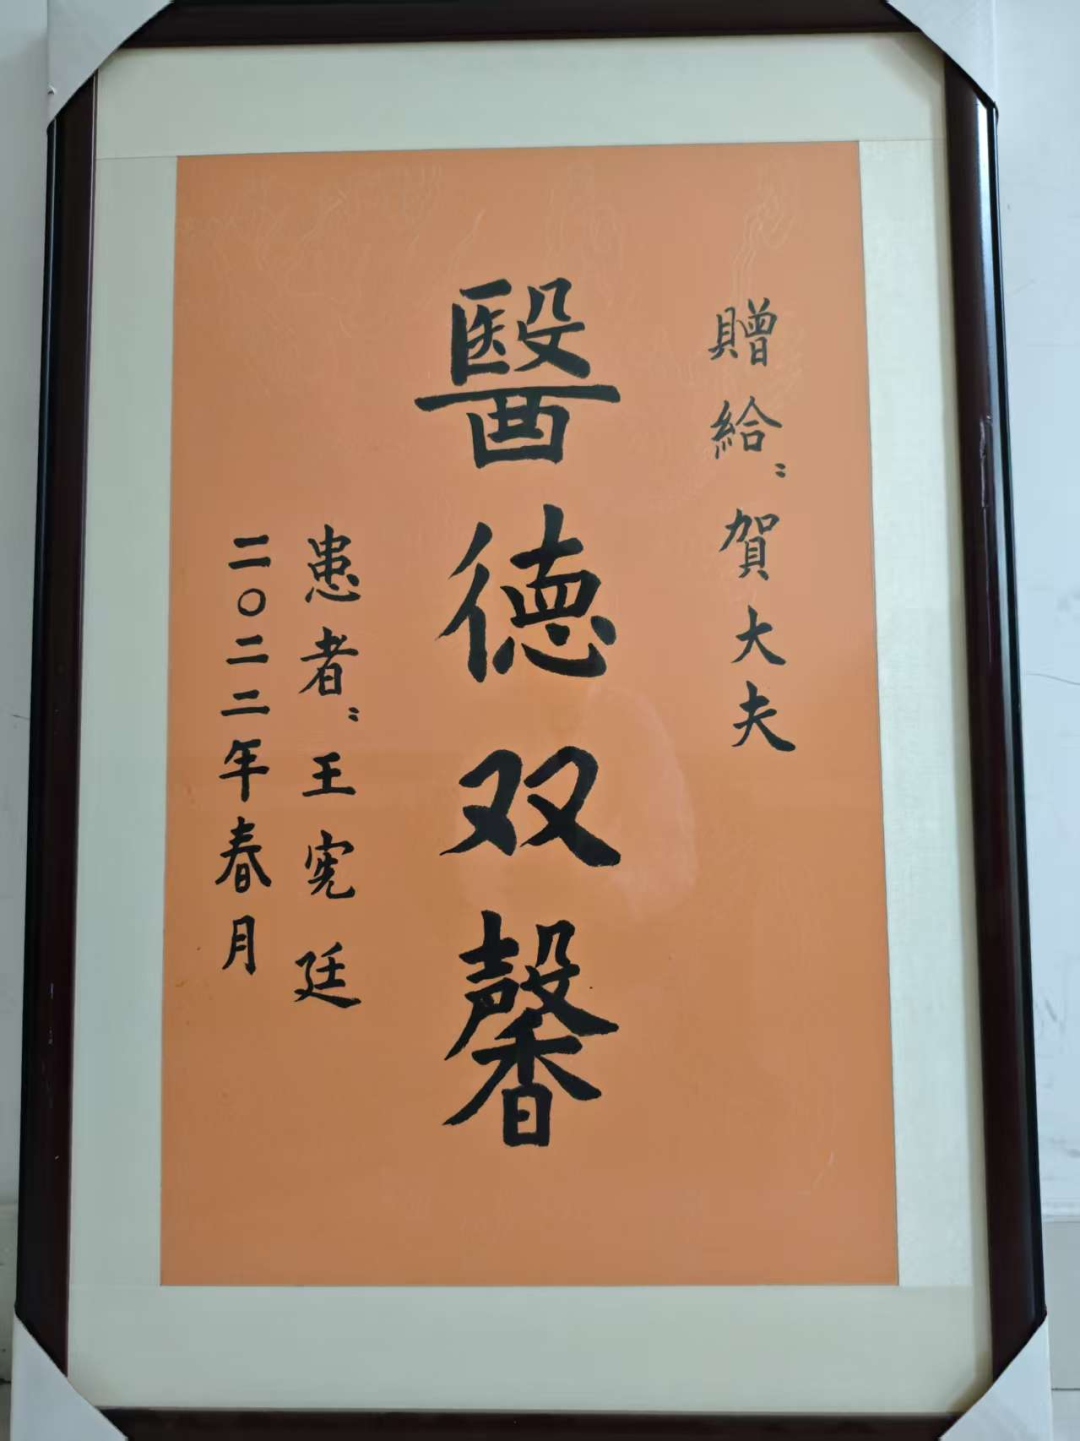 贈給：賀大夫
醫德双馨
患者：王宪廷
二〇二二年春月